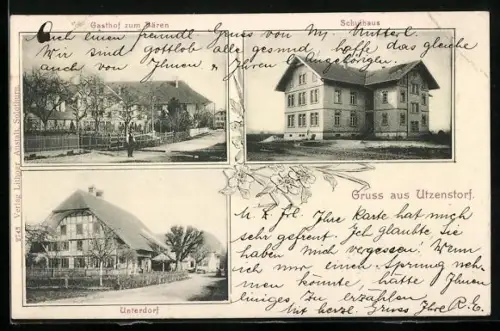 Gasthof zum Bären
Schulhaus
Auch einen freundl Gruss von My. Mutterl.
Wir sind gottlob alle gesund, hoffe das gleiche
auch von Ihnen & Ihren Angehörigen.
Gruss aus Utzenstorf.
M. L. Frl. Ihre Karte hat mich
sehr gefreut. Ich glaubte Sie
haben mich vergessen. Wenn
ich nur einen Sprung neh-
men könnte, hätte Ihnen
einiges, zu erzählen
Mit herzl. Gruss Ihre R. E.
Unterdorf
Verlag Lithogr. Anstalt, Solothurn.